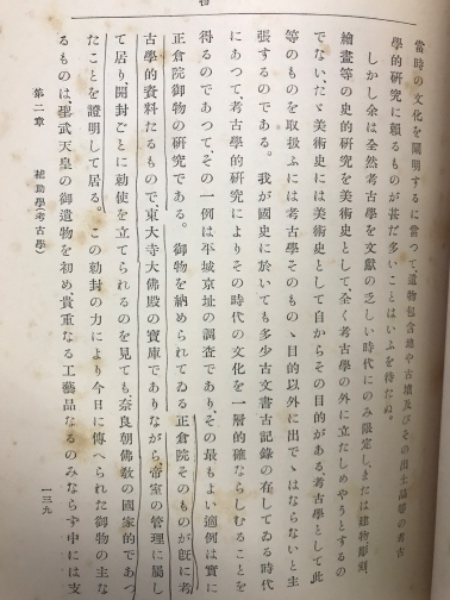 當時の文化を闡明するに當つて、遺物包含地や古墳及びその出土品等の考古
學的硏究に賴るものが甚だ多いことはいふを待たぬ。
しかし余は全然考古學を文獻の乏しい時代にのみ限定し、または建物、彫刻、
繪畫等の史的硏究を美術史として、全く考古學の外に立たしめやうとするの
でない、たゞ美術史には美術史として自からその目的がある、考古學として此
等のものを取扱ふには考古學そのものゝ目的以外に出でゝはならないと主
張するのである。我が國史に於いても多少古文書古記錄の存してゐる時代
にあつて、考古學的硏究によりその時代の文化を一層的確ならしむることを
得るのであつて、その一例は平城京址の調査であり、その最もよい適例は實に
正倉院御物の硏究である。御物を納められてゐる正倉院そのものが旣に考
古學的資料たるもので、東大寺大佛殿の寶庫でありながら、帝室の管理に屬し
て居り、開封ごとに勅使を立てられるのを見ても、奈良朝佛敎の國家的であつ
たことを證明して居る。この勅封の力により今日に傳へられた御物の主な
るものは、聖武天皇の御遺物を初め、貴重なる工藝品なるのみならず中には支
第二章 補助學(考古學)
一三九